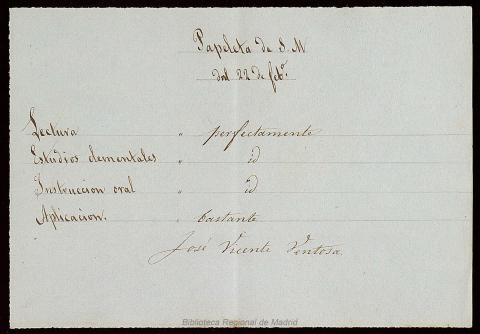 Papeleta de S. M
del 22 de feb.º
Lectura " perfectamente
Estudios elementales " id
Instruccion oral " id
Aplicacion. " bastante
José Vicente Ventosa.
Biblioteca Regional de Madrid